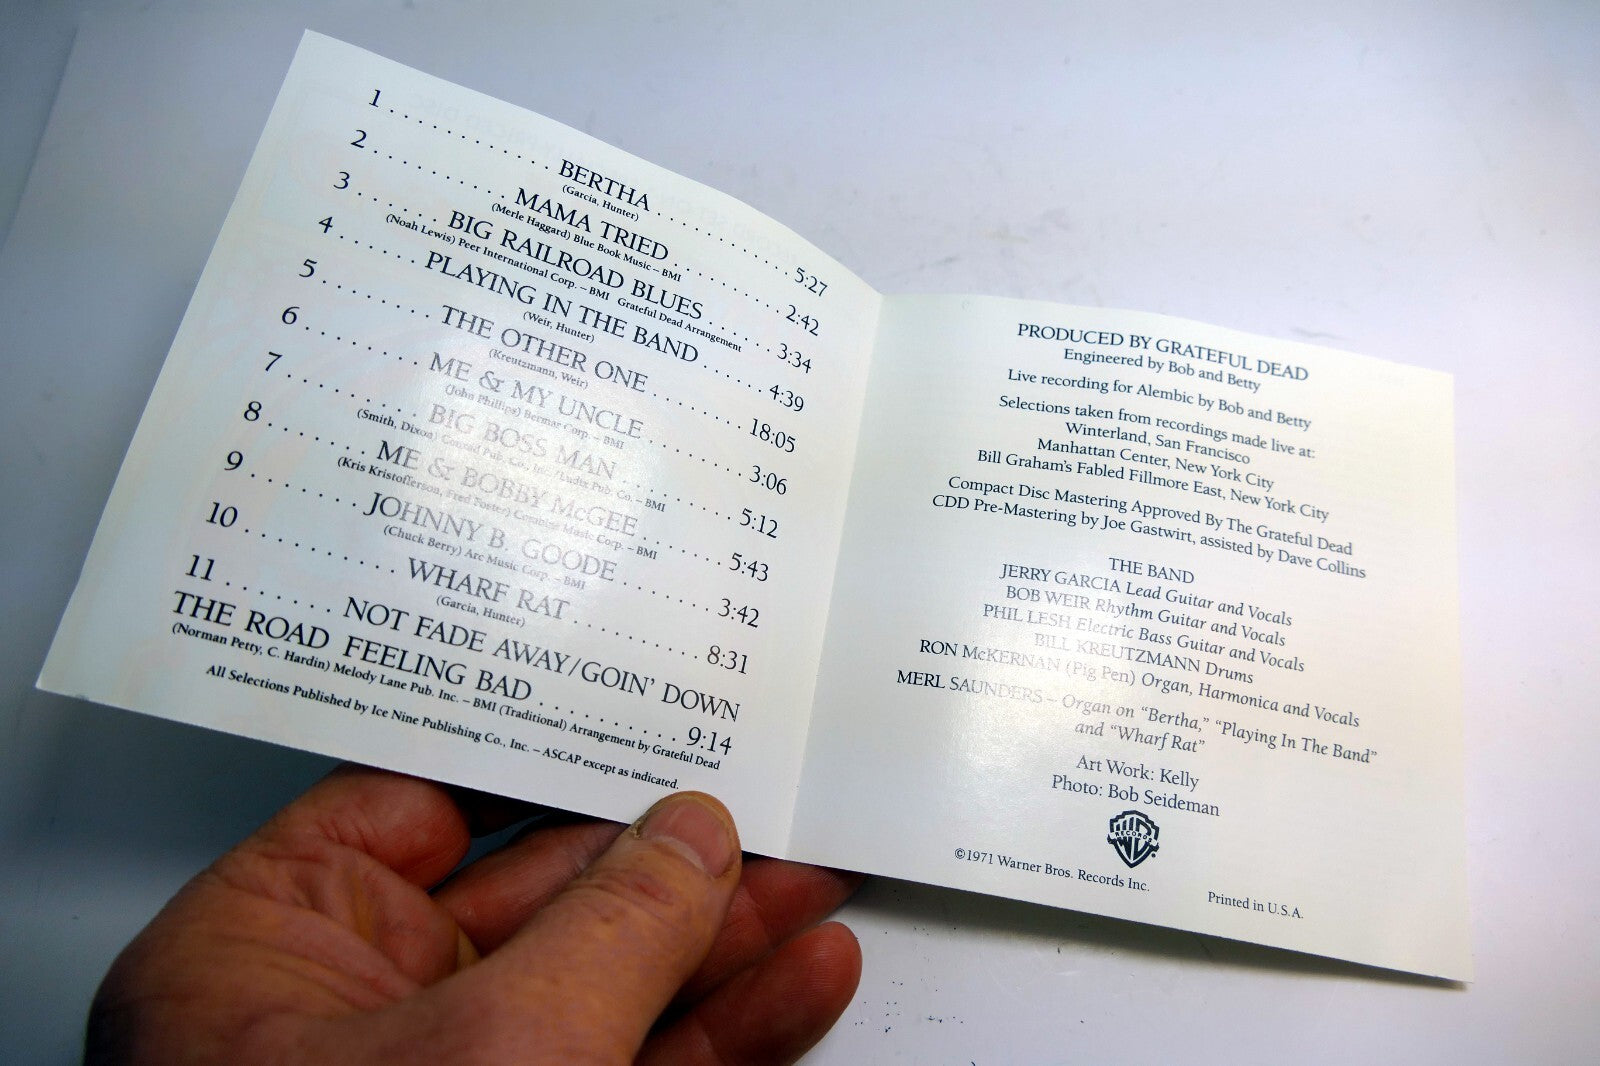 1 . . . . . . . . . . . . BERTHA . . . . . . . . . . . . 5:27
(Garcia, Hunter)
2 . . . . . . . . . . MAMA TRIED . . . . . . . . . . 2:42
(Merle Haggard) Blue Book Music – BMI
3 . . . . . . BIG RAILROAD BLUES . . . . . . 3:34
(Noah Lewis) Peer International Corp. – BMI Grateful Dead Arrangement
4 . . . . . . PLAYING IN THE BAND . . . . . . 4:39
(Weir, Hunter)
5 . . . . . . . . THE OTHER ONE . . . . . . . . 18:05
(Kreutzmann, Weir)
6 . . . . . . . . ME & MY UNCLE . . . . . . . . 3:06
(John Phillips) Bermar Corp. – BMI
7 . . . . . . . . . BIG BOSS MAN . . . . . . . . . 5:12
(Smith, Dixon) Conrad Pub. Co., Inc./Ludix Pub. Co. – BMI
8 . . . . . . . ME & BOBBY McGEE . . . . . . . 5:43
(Kris Kristofferson, Fred Foster) Combine Music Corp. – BMI
9 . . . . . . . . JOHNNY B. GOODE . . . . . . . . 3:42
(Chuck Berry) Arc Music Corp. – BMI
10 . . . . . . . . . . WHARF RAT . . . . . . . . . . 8:31
(Garcia, Hunter)
11 . . . . . . . NOT FADE AWAY/GOIN' DOWN
THE ROAD FEELING BAD . . . . . . . . . . 9:14
(Norman Petty, C. Hardin) Melody Lane Pub. Inc. – BMI (Traditional) Arrangement by Grateful Dead
All Selections Published by Ice Nine Publishing Co., Inc. – ASCAP except as indicated.
PRODUCED BY GRATEFUL DEAD
Engineered by Bob and Betty
Live recording for Alembic by Bob and Betty
Selections taken from recordings made live at:
Winterland, San Francisco
Manhattan Center, New York City
Bill Graham's Fabled Fillmore East, New York City
Compact Disc Mastering Approved By The Grateful Dead
CDD Pre-Mastering by Joe Gastwirt, assisted by Dave Collins
THE BAND
JERRY GARCIA Lead Guitar and Vocals
BOB WEIR Rhythm Guitar and Vocals
PHIL LESH Electric Bass Guitar and Vocals
BILL KREUTZMANN Drums
RON McKERNAN (Pig Pen) Organ, Harmonica and Vocals
MERL SAUNDERS – Organ on "Bertha," "Playing In The Band"
and "Wharf Rat"
Art Work: Kelly
Photo: Bob Seideman
RECORDS
©1971 Warner Bros. Records Inc.
Printed in U.S.A.